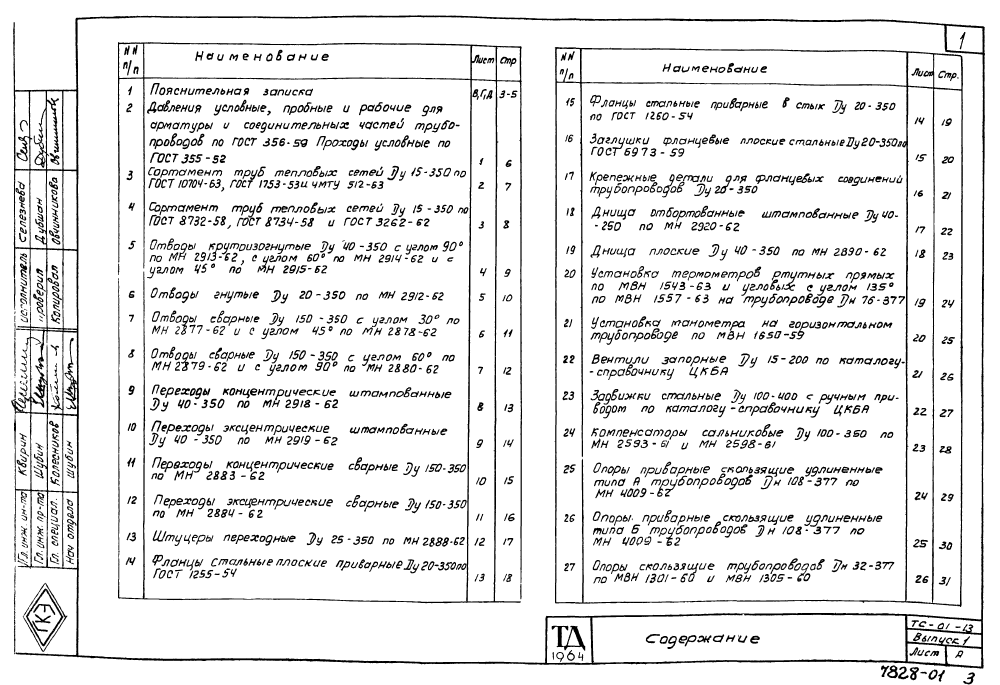 1
NN п/п Наименование Лист Стр
1 Пояснительная записка В,Г,Д 3-5
2 Давления условные, пробные и рабочие для
арматуры и соединительных частей трубо-
проводов по ГОСТ 356-59 Проходы условные по
ГОСТ 355-52 1 6
3 Сортамент труб тепловых сетей Ду 15-350 по
ГОСТ 10704-63, ГОСТ 1753-53 и ЧМТУ 512-63 2 7
4 Сортамент труб тепловых сетей Ду 15-350 по
ГОСТ 8732-58, ГОСТ 8734-58 и ГОСТ 3262-62 3 8
5 Отводы крутоизогнутые Ду 40-350 с углом 90°
по МН 2913-62, с углом 60° по МН 2914-62 и с
углом 45° по МН 2915-62 4 9
6 Отводы гнутые Ду 20-350 по МН 2912-62 5 10
7 Отводы сварные Ду 150-350 с углом 30° по
МН 2877-62 и с углом 45° по МН 2878-62 6 11
8 Отводы сварные Ду 150-350 с углом 60° по
МН 2879-62 и с углом 90° по МН 2880-62 7 12
9 Переходы концентрические штампованные
Ду 40-350 по МН 2918-62 8 13
10 Переходы эксцентрические штампованные
Ду 40-350 по МН 2919-62 9 14
11 Переходы концентрические сварные Ду 150-350
по МН 2883-62 10 15
12 Переходы эксцентрические сварные Ду 150-350
по МН 2884-62 11 16
13 Штуцеры переходные Ду 25-350 по МН 2888-62 12 17
14 Фланцы стальные плоские приварные Ду 20-350 по
ГОСТ 1255-54 13 18
NN п/п Наименование Лист Стр.
15 Фланцы стальные приварные в стык Ду 20-350
по ГОСТ 1260-54 14 19
16 Заглушки фланцевые плоские стальные Ду 20-350 по
ГОСТ 6973-59 15 20
17 Крепежные детали для фланцевых соединений
трубопроводов Ду 20-350 16 21
18 Днища отбортованные штампованные Ду 40-
-250 по МН 2920-62 17 22
19 Днища плоские Ду 40-350 по МН 2890-62 18 23
20 Установка термометров ртутных прямых
по МВН 1543-63 и угловых с углом 135°
по МВН 1557-63 на трубопроводе Дн 76-377 19 24
21 Установка манометра на горизонтальном
трубопроводе по МВН 1650-59 20 25
22 Вентили запорные Ду 15-200 по каталогу-
-справочнику ЦКБА 21 26
23 Задвижки стальные Ду 100-400 с ручным при-
водом по каталогу-справочнику ЦКБА 22 27
24 Компенсаторы сальниковые Ду 100-350 по
МН 2593-61 и МН 2598-61 23 28
25 Опоры приварные скользящие удлиненные
типа А трубопроводов Дн 108-377 по
МН 4009-62 24 29
26 Опоры приварные скользящие удлиненные
типа Б трубопроводов Дн 108-377 по
МН 4009-62 25 30
27 Опоры скользящие трубопроводов Дн 32-377
по МВН 1301-60 и МВН 1305-60 26 31
Исполнитель Селезнева
Проверил Дубшан
Копировал Овчинникова
Гл. инж. ин-та Квирин
Гл. инж. пр-та Шубин
Гл. специал. Колесников
Нач отдела Шубин
ГКЭ
ТД
1964
Содержание
ТС-01-13
Выпуск 1
Лист А
7828-01 3